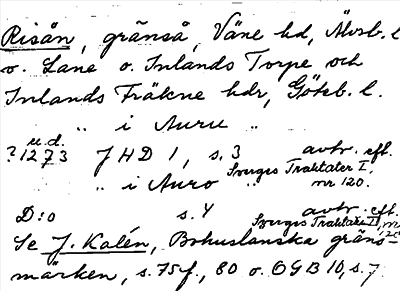 Risån, gränså, Väne hd, Älvsb. l.
o. Lane o. Inlands Torpe och
Inlands Fräkne hdr, Göteb. l.
" i Auru "
u.d.
? 1273 JHD 1, s. 3 avtr. eft.
Sverges Traktater I,
" i Auro " nr 120.
D:o s. 4 avtr. eft.
Sverges Traktater I,
Se J. Kalén, Bohuslänska gräns-
märken, s. 75 f., 80 o. OGB 10, s. 7